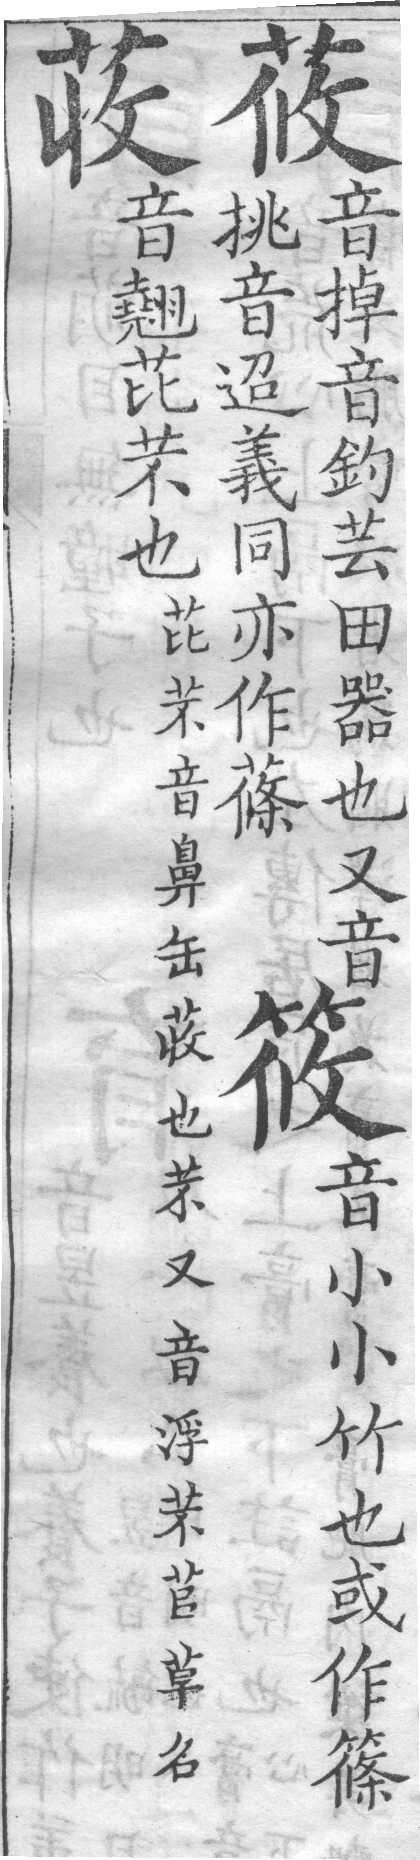 莜
音掉音鈞芸田器也又音
挑音迢義同亦作蓧
筱
音小小竹也或作篠
荍
音翹芘芣也
芘芣音鼻缶荍也芣又音浮芣苢草名